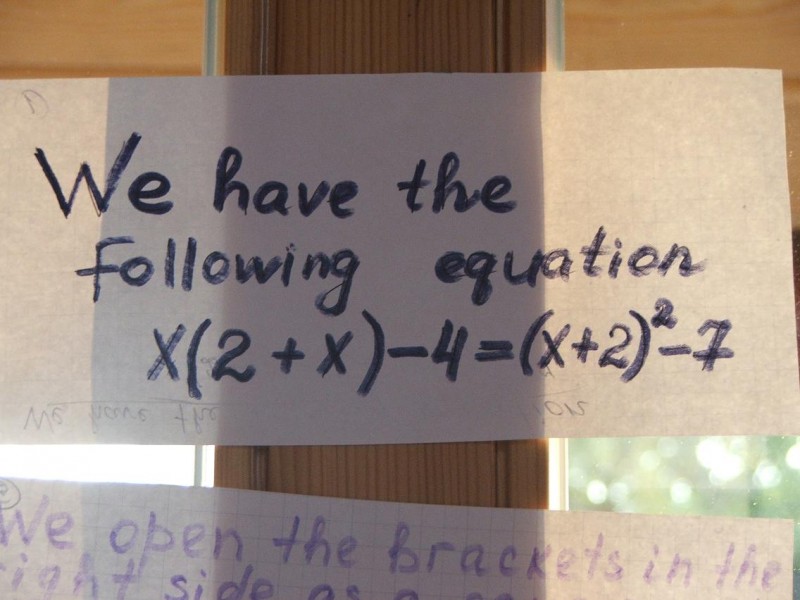 We have the
following equation
x(2+x)-4=(x+2)²-7
We have the
ion
We open the brackets in the
right side as a